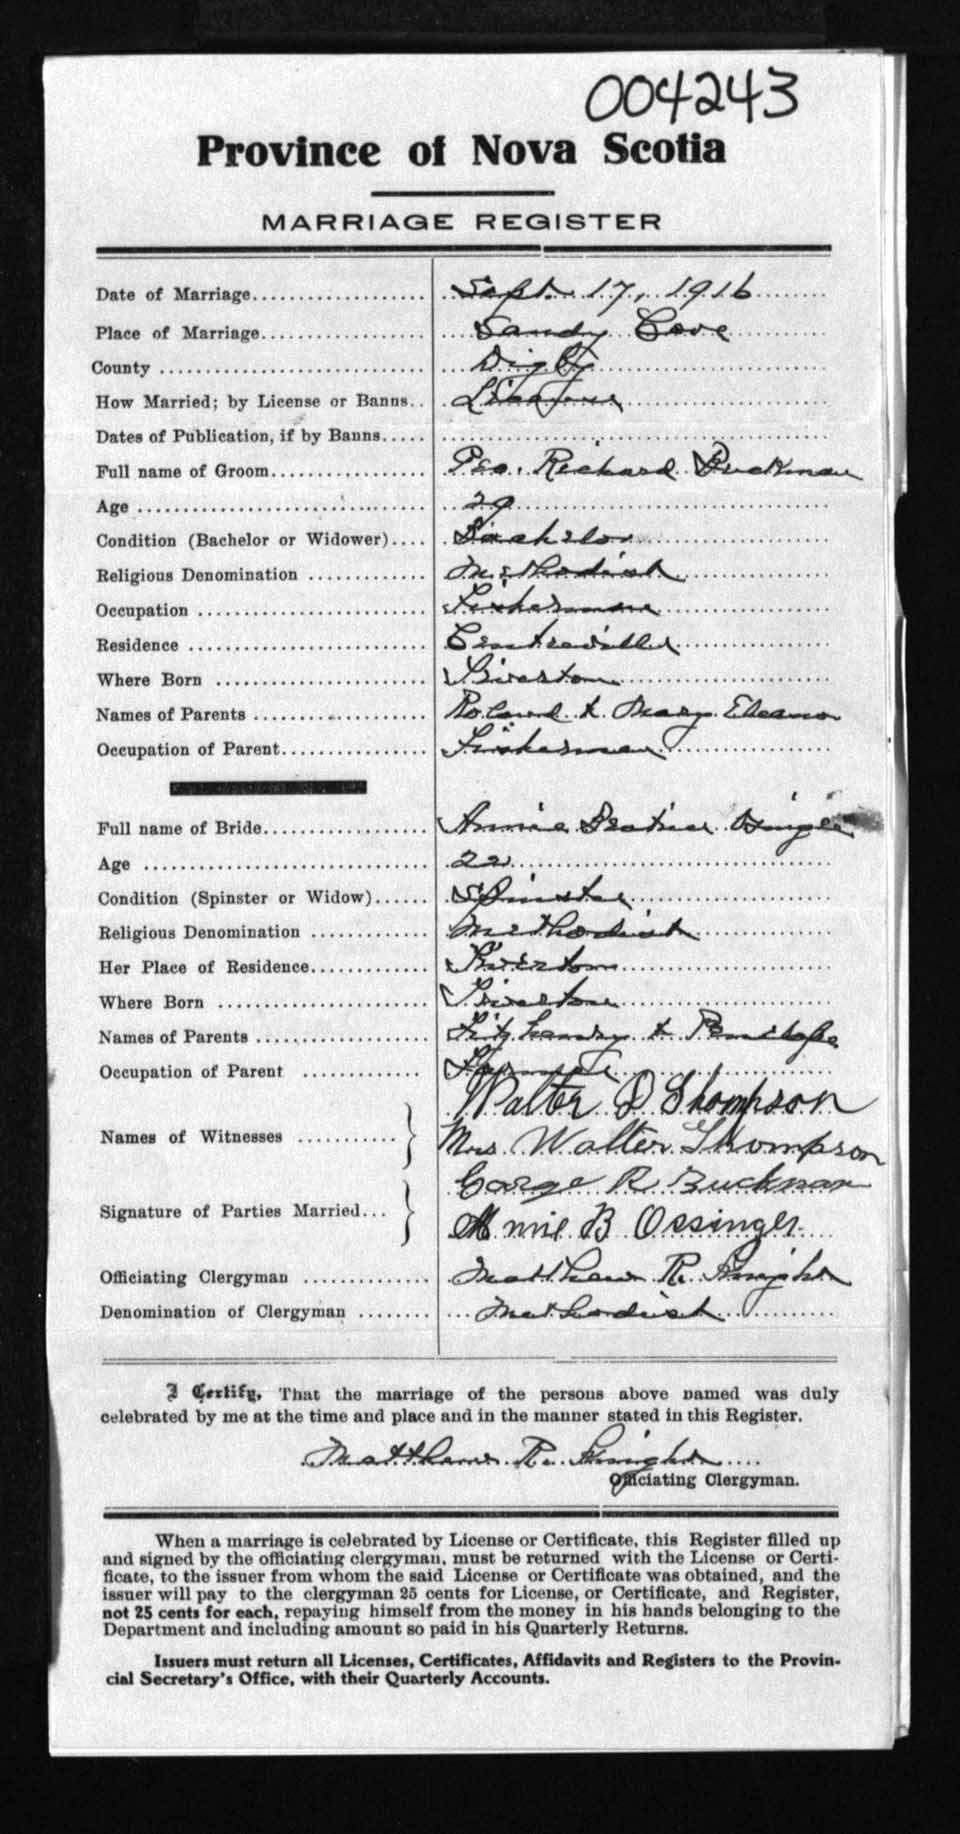 004243
Province of Nova Scotia
MARRIAGE REGISTER
Date of Marriage Sept. 17, 1916
Place of Marriage Sandy Cove
County Digby
How Married; by License or Banns License
Dates of Publication, if by Banns
Full name of Groom Geo. Richard Buckman
Age 29
Condition (Bachelor or Widower) Bachelor
Religious Denomination Methodist
Occupation Fisherman
Residence Centreville
Where Born Tiverton
Names of Parents Roland & Mary Eleanor
Occupation of Parent Fisherman
Full name of Bride Annie Beatrice
Age 22
Condition (Spinster or Widow) Spinster
Religious Denomination Methodist
Her Place of Residence Tiverton
Where Born Tiverton
Names of Parents Fitz Landry & Penelope
Occupation of Parent Farmer
Names of Witnesses Walter D Thompson
Mrs. Walter Thompson
Signature of Parties Married George R Buckman
Annie B Ossinger
Officiating Clergyman Matthew R. Knight
Denomination of Clergyman Methodist
I Certify, That the marriage of the persons above named was duly
celebrated by me at the time and place and in the manner stated in this Register.
Matthew R. Knight
Officiating Clergyman.
When a marriage is celebrated by License or Certificate, this Register filled up
and signed by the officiating clergyman, must be returned with the License or Certi-
ficate, to the issuer from whom the said License or Certificate was obtained, and the
issuer will pay to the clergyman 25 cents for License, or Certificate, and Register,
not 25 cents for each, repaying himself from the money in his hands belonging to the
Department and including amount so paid in his Quarterly Returns.
Issuers must return all Licenses, Certificates, Affidavits and Registers to the Provin-
cial Secretary's Office, with their Quarterly Accounts.